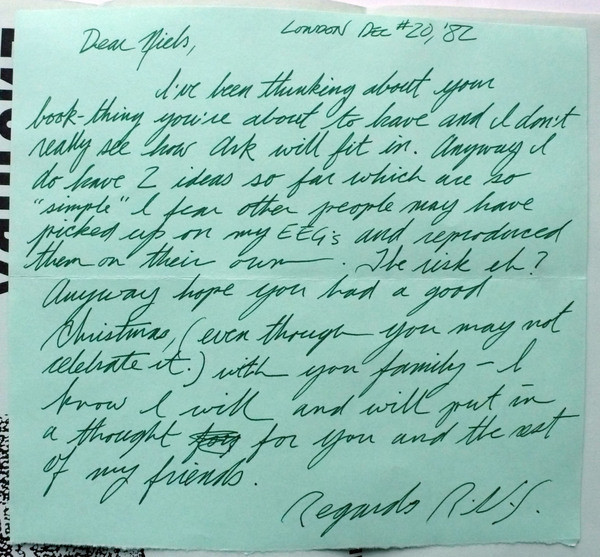 LONDON DEC #20, '82
Dear Niels,
I've been thinking about your
book-thing you're about to have and I don't
really see how Ark will fit in. Anyway I
do have 2 ideas so far which are so
"simple" I fear other people may have
picked up on my EEG's and reproduced
them on their own. The risk eh?
Anyway hope you had a good
Christmas, (even though you may not
celebrate it.) with you family - I
know I will and will put in
a thought for you and the rest
of my friends.
Regards